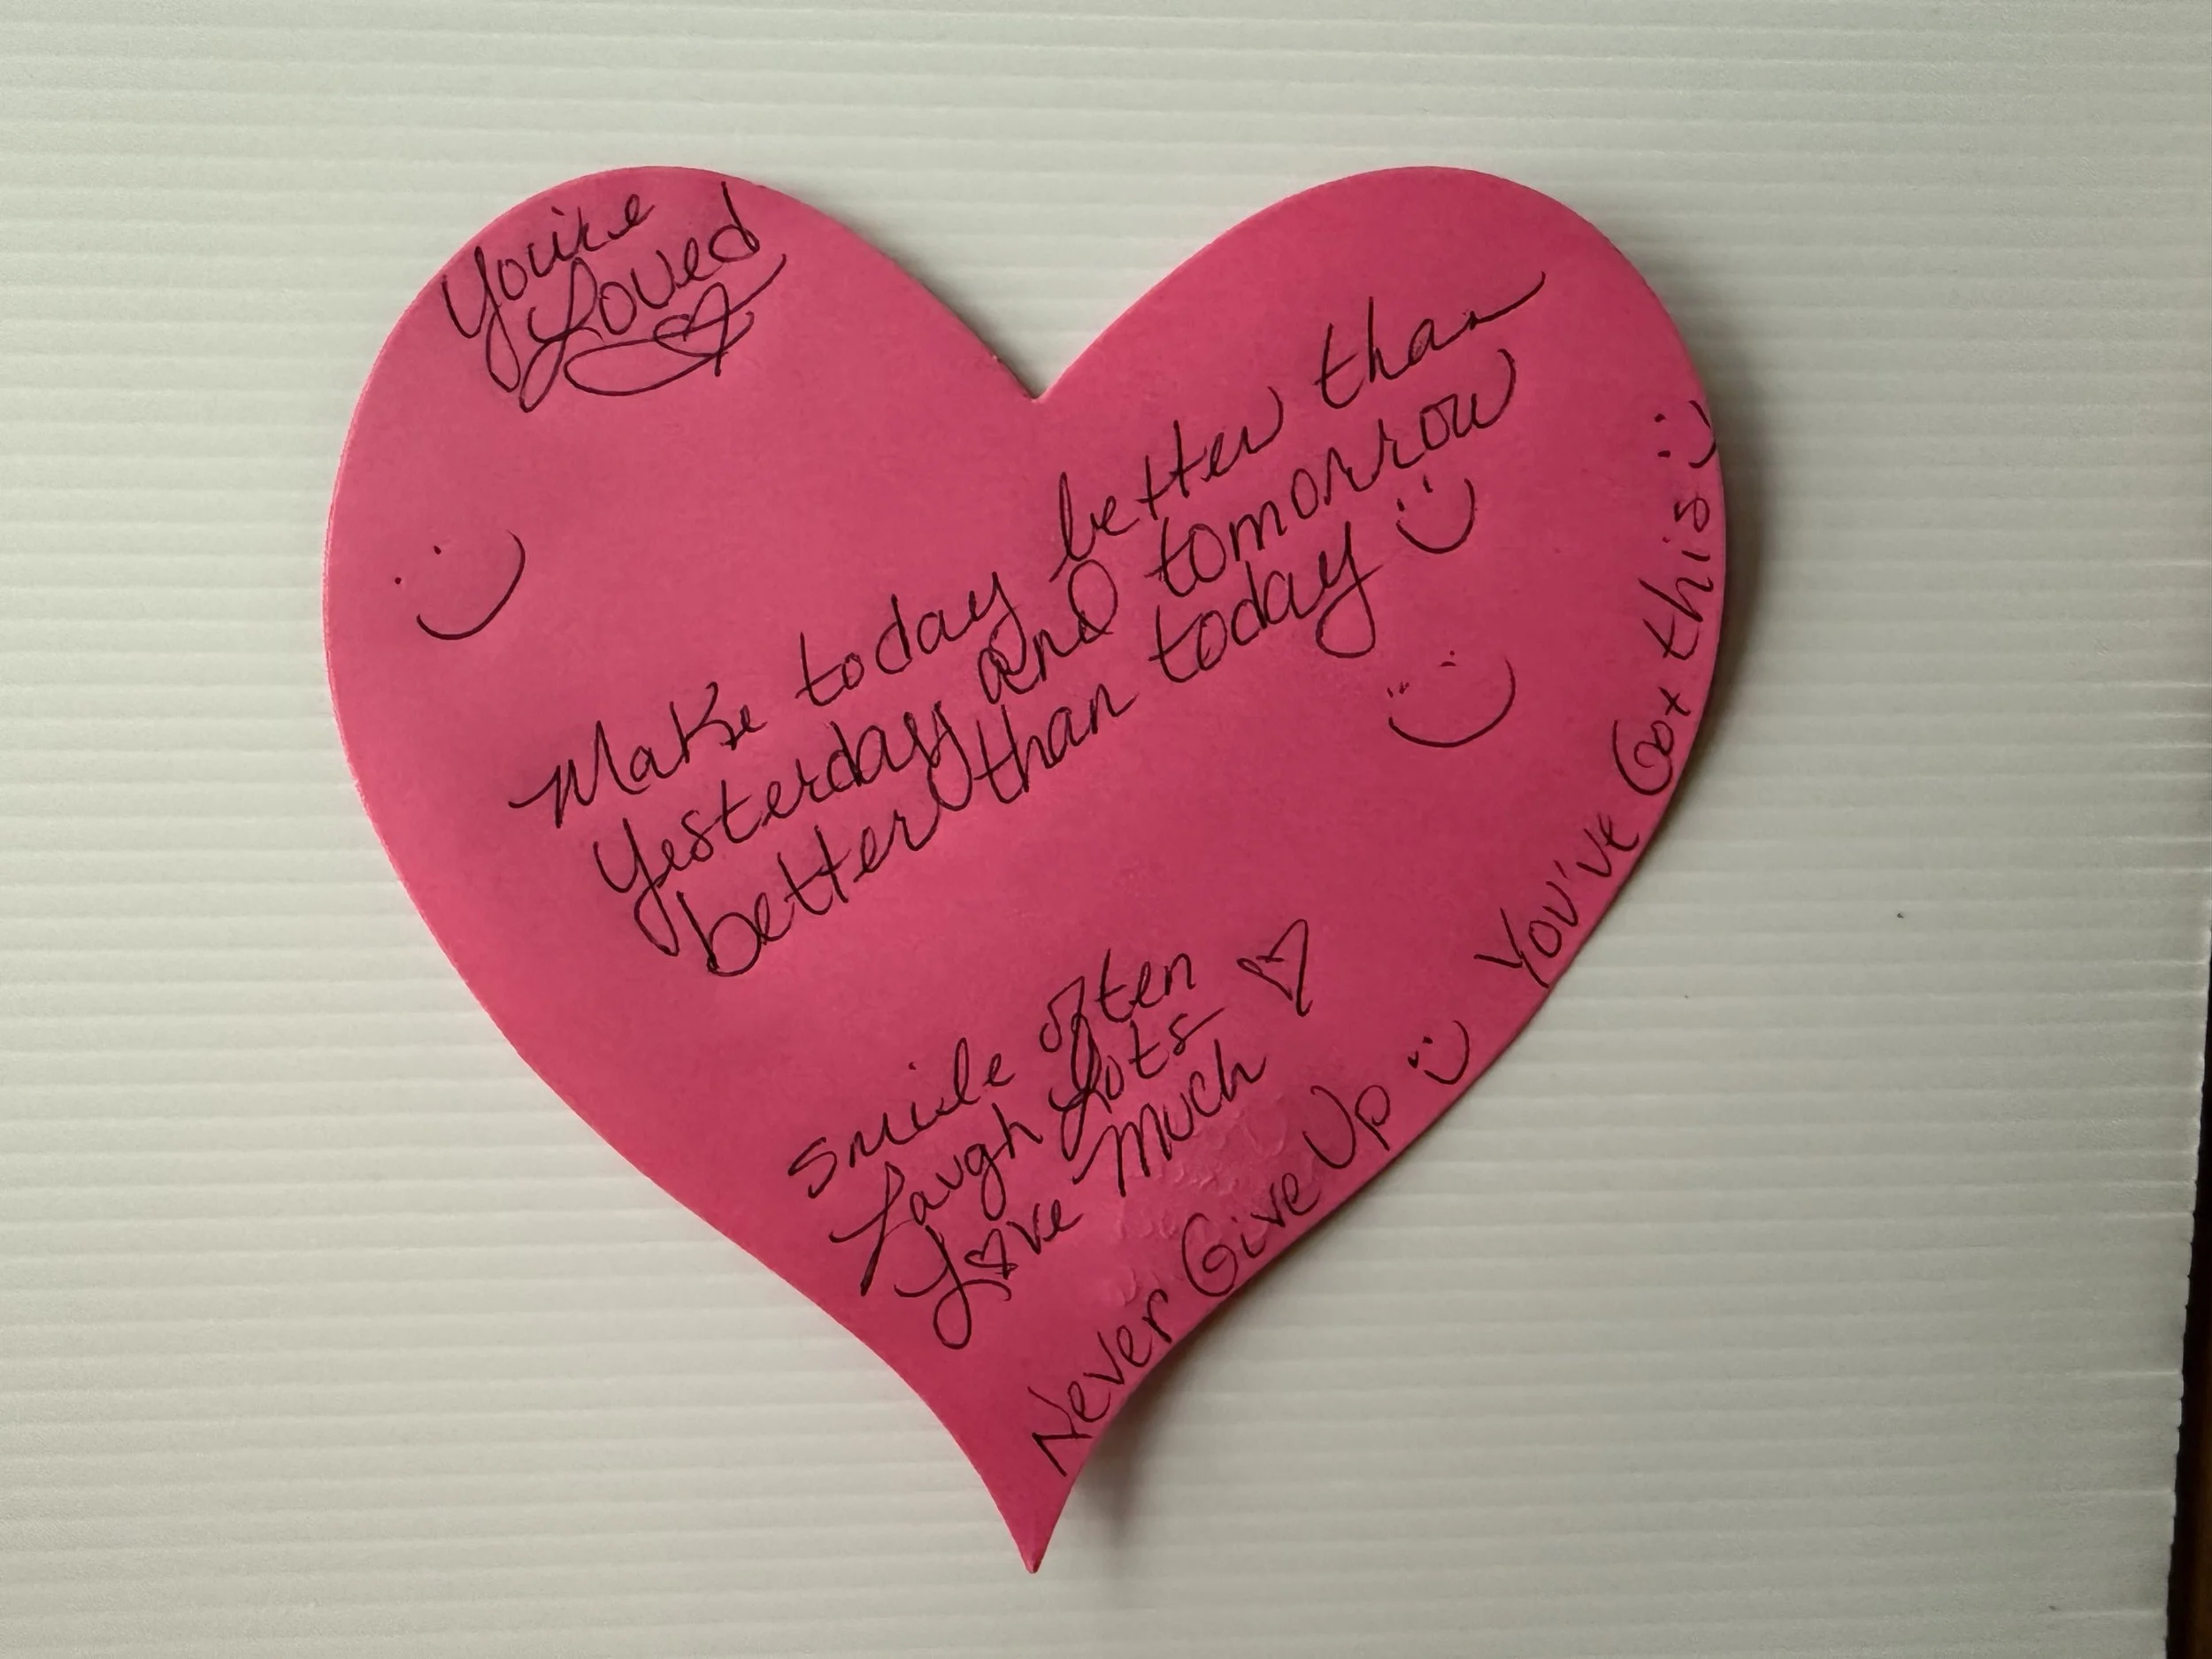 You're
Loved
Make today better than
yesterday and tomorrow
better than today
Smile often
Laugh Lots
Love Much
Never Give Up
You've Got this